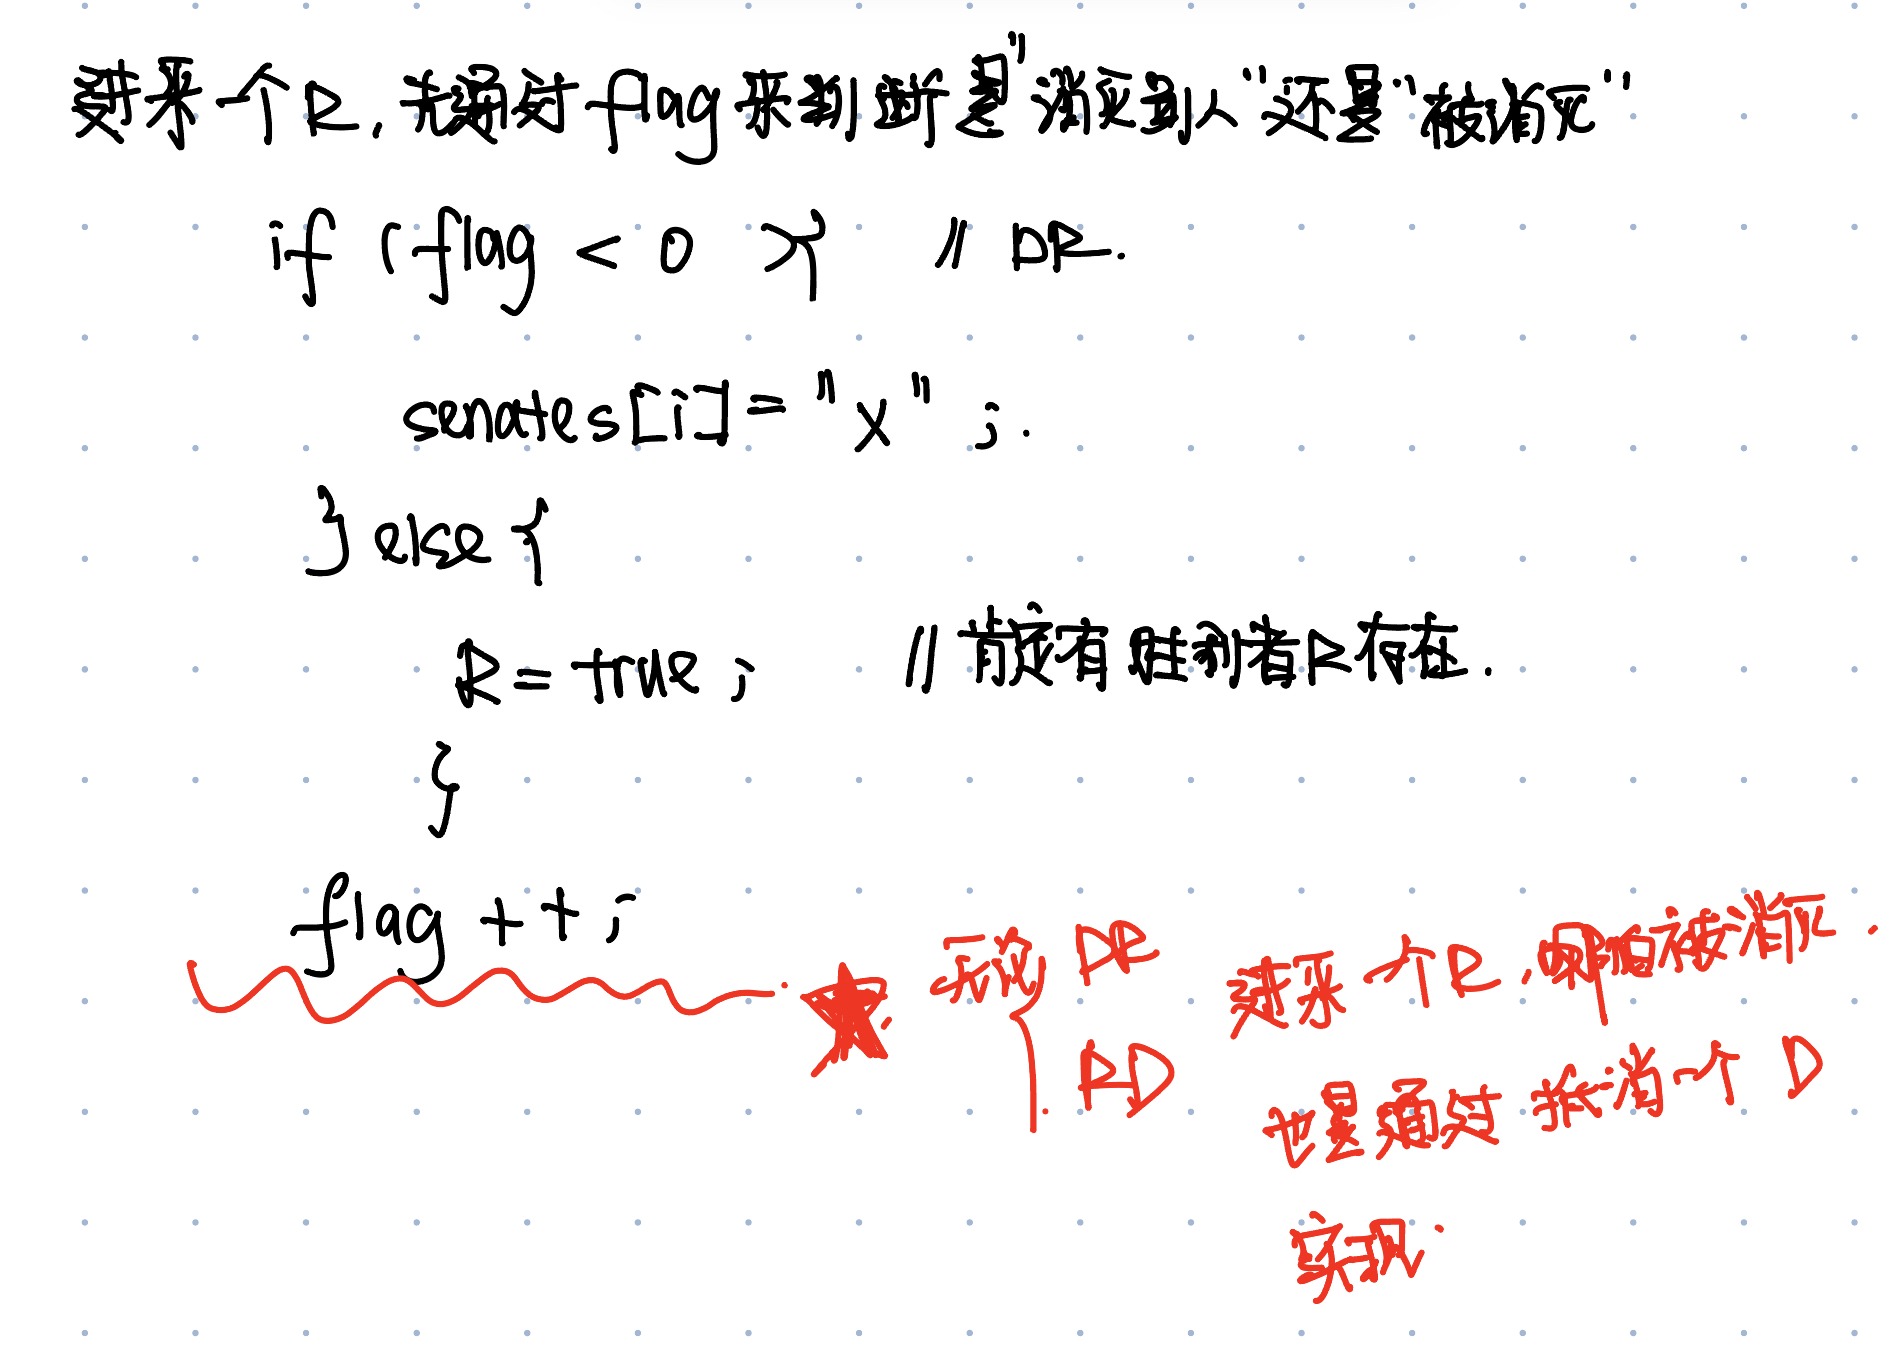 进来一个R,先通过flag来判断是"消灭别人"还是"被消灭"
if (flag < 0 ){ // DR.
senates[i] = "x" ;
} else {
R = true ; // 肯定有胜利者R存在.
}
flag ++ ;
无论 DR 进来一个R,哪怕被消灭.
RD 也是通过抵消一个D
实现.